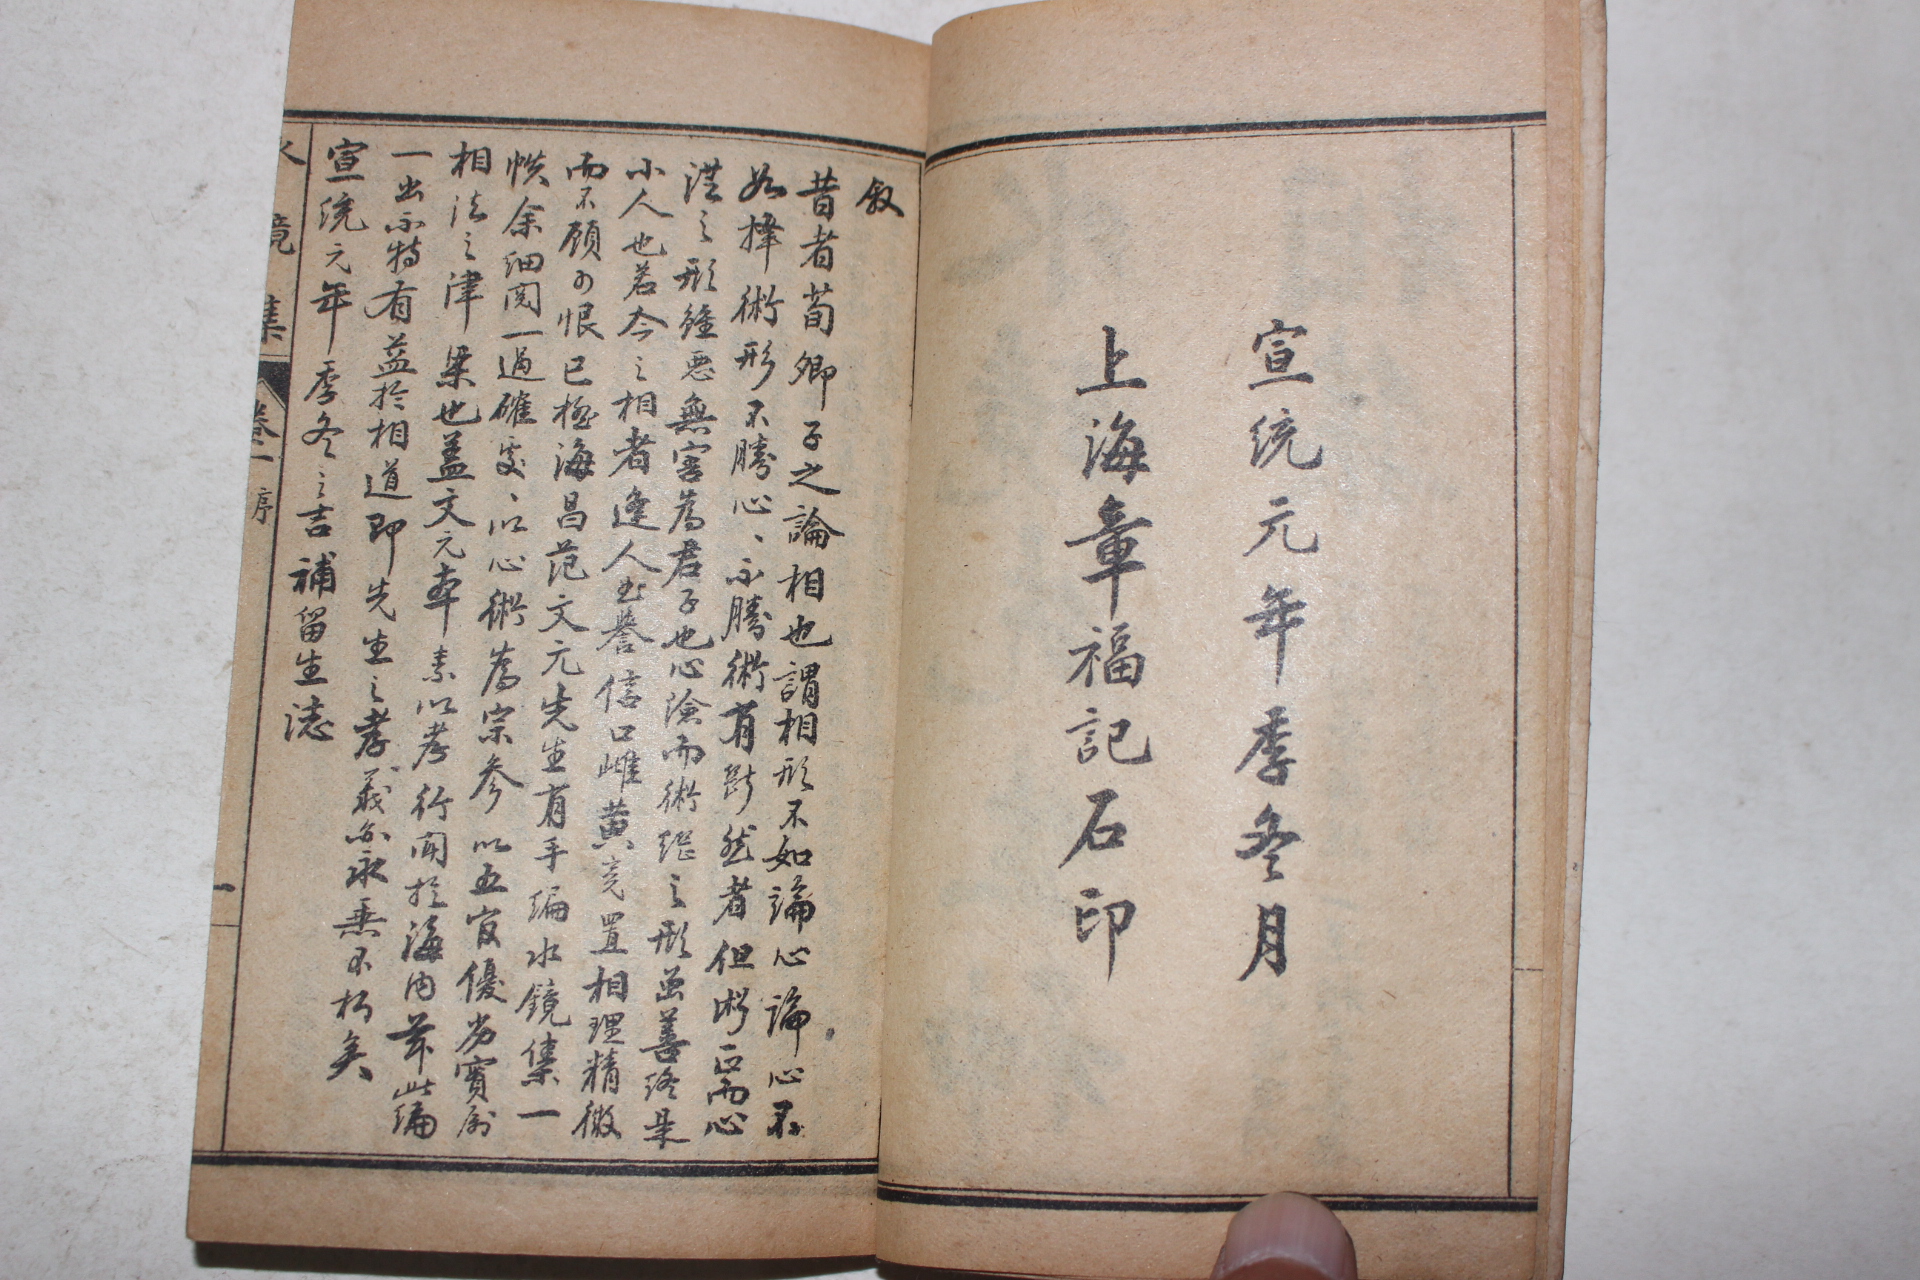 宣統元年季冬月
上海章福記石印
敘
昔者荀卿子之論相也謂相形不如論心論心不
如擇術形不勝心、不勝術術有斯然者但術正而心
港之形雖惡無害為君子也心險而術繆之形雖善終是
小人也若今之相者逢人出譽信口雌黃竟置相理精微
而不顧可恨已極海昌范文元先生有手編水鏡集一
帙余細閱一過確處、以心術為宗參以五官優劣實為
相法之津梁也蓋文元率素以孝行聞於海內茲此編
一出不特有益於相道即先生之孝義亦永垂不朽矣
宣統元年季冬之吉補留生誌
水鏡集 卷一 序 一